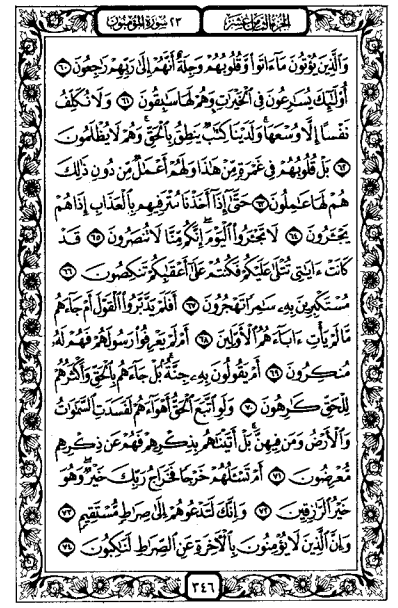 الجزء الثامن عشر ٢٣ سورة المؤمنون
وَالَّذِينَ يُؤْتُونَ مَا ءَاتَوا وَّقُلُوبُهُمْ وَجِلَةٌ أَنَّهُمْ إِلَىٰ رَبِّهِمْ رَاجِعُونَ ٦٠
أُوْلَٰٓئِكَ يُسَٰرِعُونَ فِي الْخَيْرَٰتِ وَهُمْ لَهَا سَٰبِقُونَ ٦١ وَلَا نُكَلِّفُ
نَفْسًا إِلَّا وُسْعَهَا وَلَدَيْنَا كِتَٰبٌ يَنطِقُ بِالْحَقِّ وَهُمْ لَا يُظْلَمُونَ
٦٢ بَلْ قُلُوبُهُمْ فِي غَمْرَةٍ مِّنْ هَٰذَا وَلَهُمْ أَعْمَٰلٌ مِّن دُونِ ذَٰلِكَ
هُمْ لَهَا عَٰمِلُونَ ٦٣ حَتَّىٰٓ إِذَآ أَخَذْنَا مُتْرَفِيهِم بِالْعَذَابِ إِذَا هُمْ
يَجْـَٔرُونَ ٦٤ لَا تَجْـَٔرُوا الْيَوْمَ إِنَّكُم مِّنَّا لَا تُنصَرُونَ ٦٥ قَدْ
كَانَتْ ءَايَٰتِي تُتْلَىٰ عَلَيْكُمْ فَكُنتُمْ عَلَىٰٓ أَعْقَٰبِكُمْ تَنكِصُونَ ٦٦
مُسْتَكْبِرِينَ بِهِۦ سَٰمِرًا تَهْجُرُونَ ٦٧ أَفَلَمْ يَدَّبَّرُوا الْقَوْلَ أَمْ جَآءَهُم
مَّا لَمْ يَأْتِ ءَابَآءَهُمُ الْأَوَّلِينَ ٦٨ أَمْ لَمْ يَعْرِفُوا رَسُولَهُمْ فَهُمْ لَهُۥ
مُنكِرُونَ ٦٩ أَمْ يَقُولُونَ بِهِۦ جِنَّةٌۢ بَلْ جَآءَهُم بِالْحَقِّ وَأَكْثَرُهُمْ
لِلْحَقِّ كَٰرِهُونَ ٧٠ وَلَوِ اتَّبَعَ الْحَقُّ أَهْوَآءَهُمْ لَفَسَدَتِ السَّمَٰوَٰتُ
وَالْأَرْضُ وَمَن فِيهِنَّ بَلْ أَتَيْنَٰهُم بِذِكْرِهِمْ فَهُمْ عَن ذِكْرِهِم
مُّعْرِضُونَ ٧١ أَمْ تَسْـَٔلُهُمْ خَرْجًا فَخَرَاجُ رَبِّكَ خَيْرٌ وَهُوَ
خَيْرُ الرَّٰزِقِينَ ٧٢ وَإِنَّكَ لَتَدْعُوهُمْ إِلَىٰ صِرَٰطٍ مُّسْتَقِيمٍ ٧٣
وَإِنَّ الَّذِينَ لَا يُؤْمِنُونَ بِالْءَاخِرَةِ عَنِ الصِّرَٰطِ لَنَٰكِبُونَ ٧٤
٣٤٦